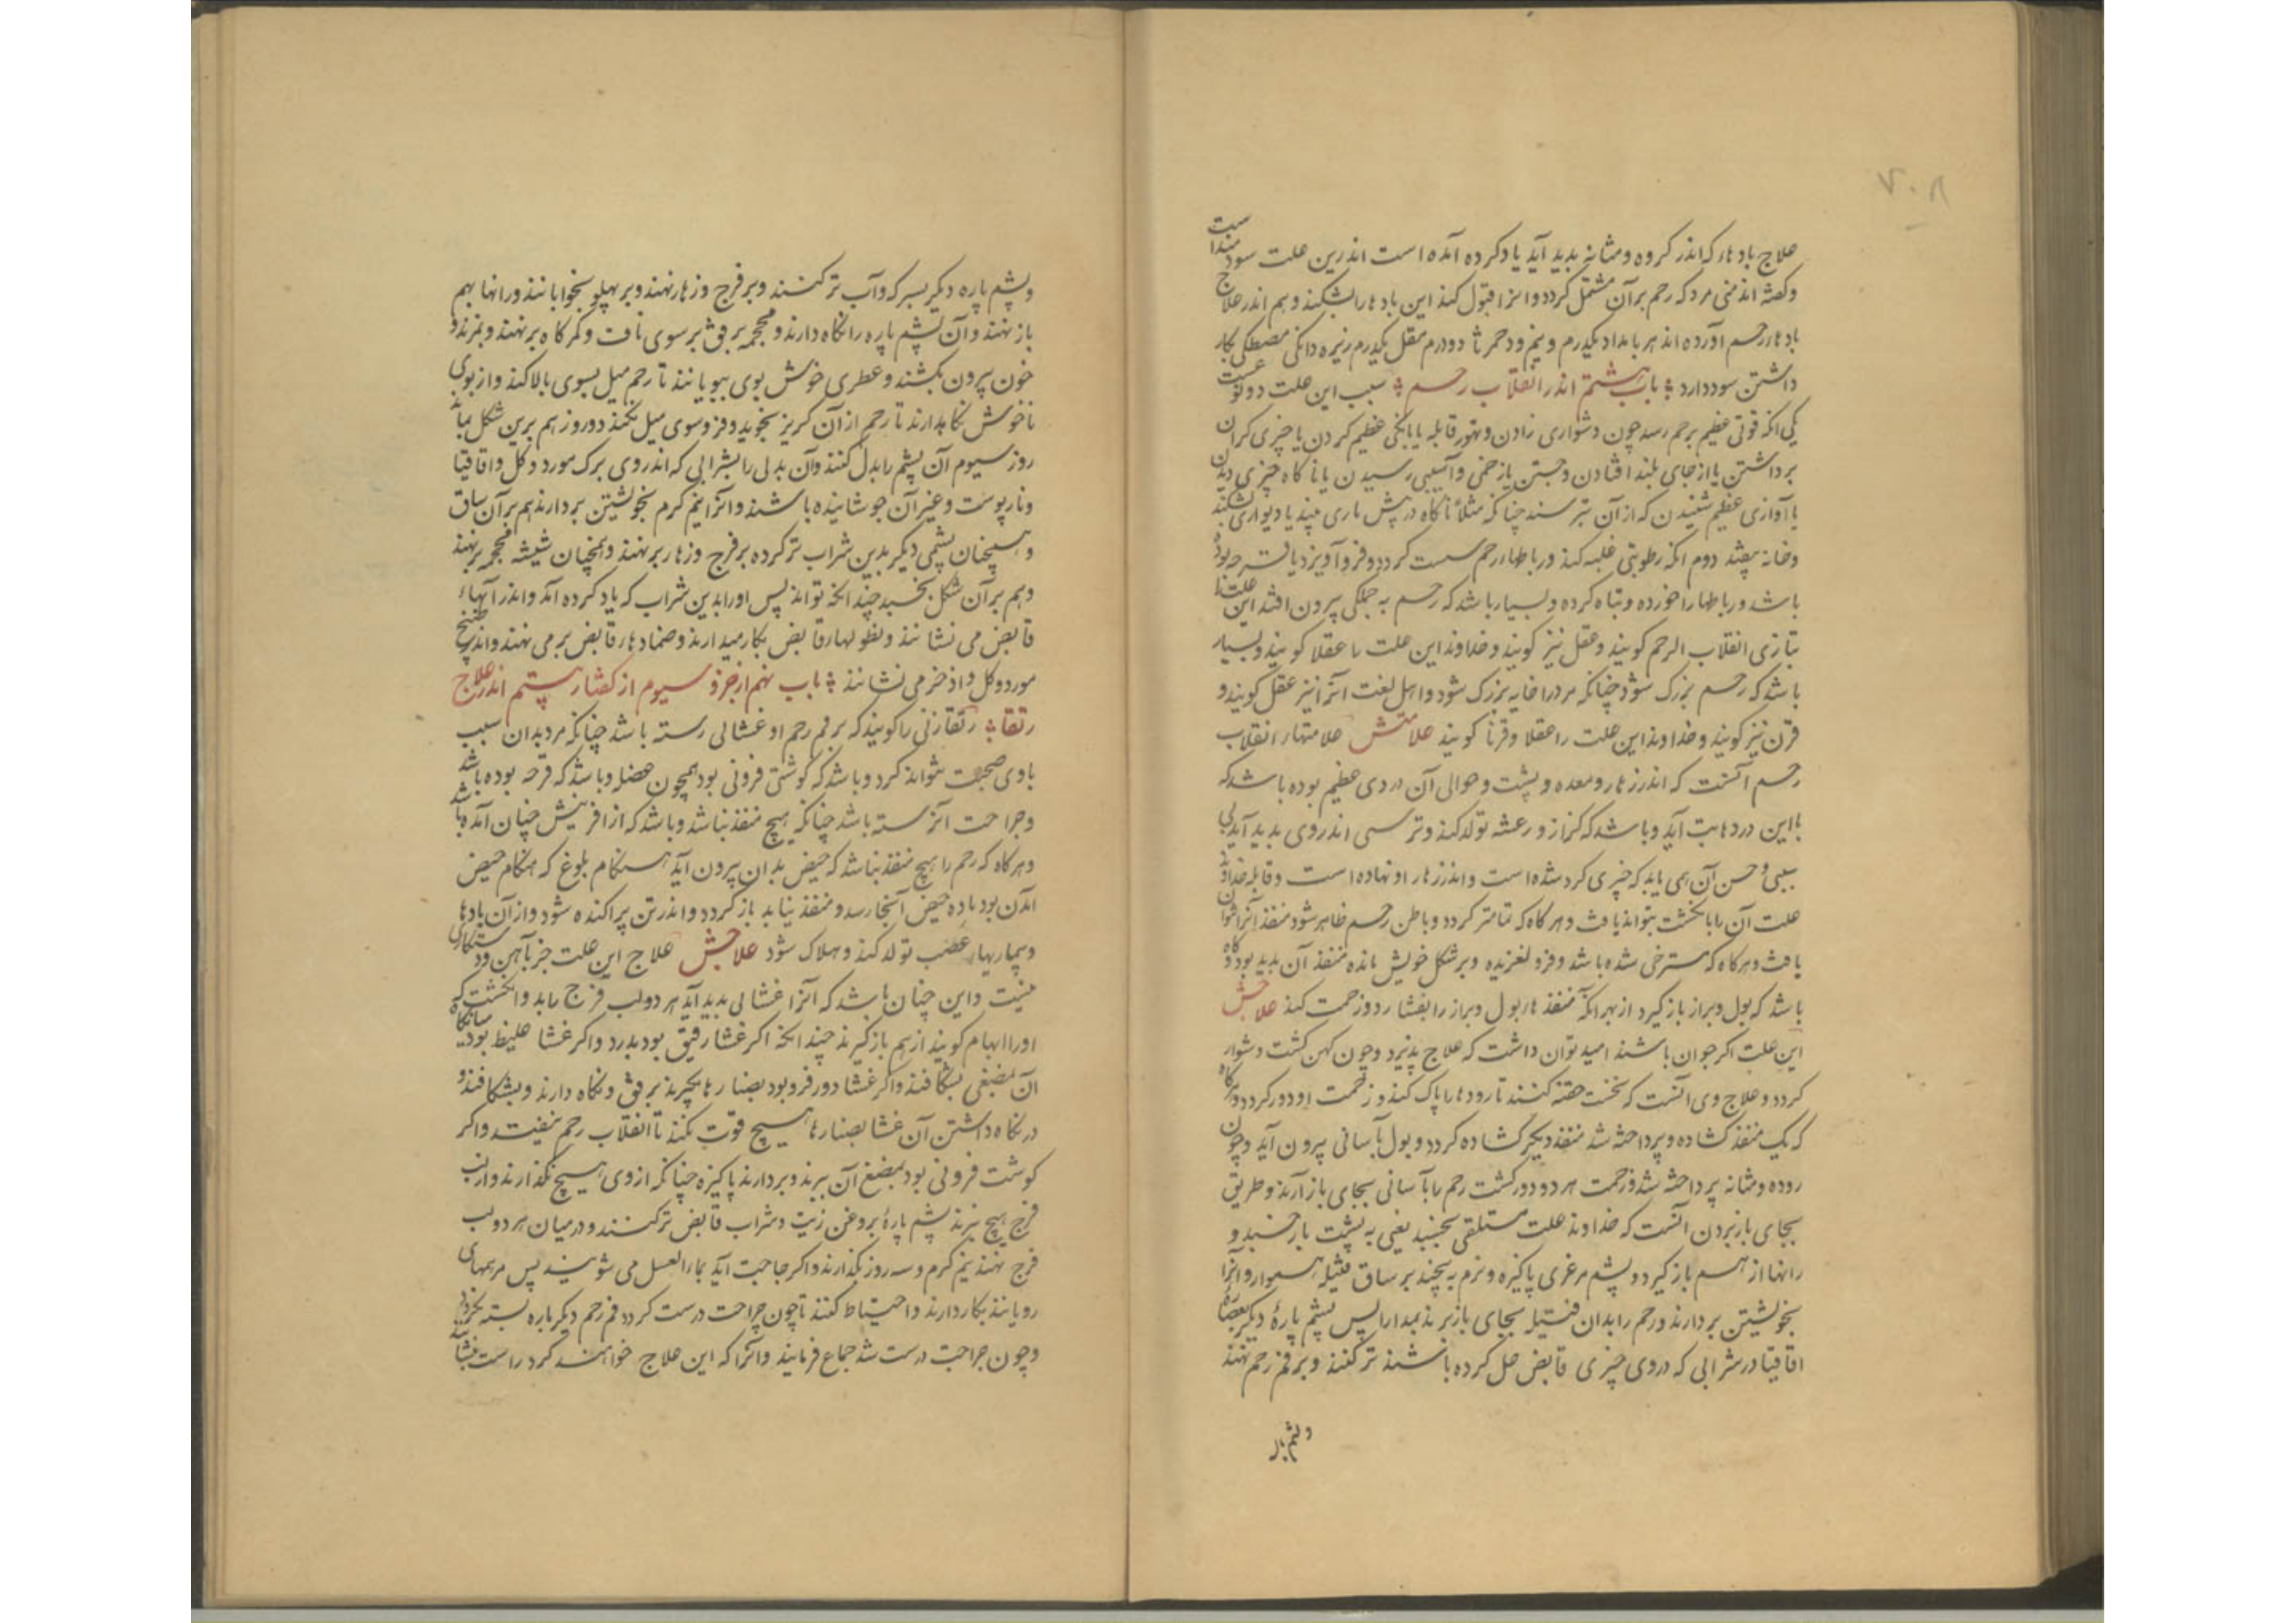 ۷۰۸
علاج بادهاء که اندر کروه و مثانه بدید آید یاد کرده آمده است اندرین علت سودمندست
و کفته اند منی مرد که رحم بر آن مشتمل کردد و انرا قبول کند این بادها را بشکند و هم اندر علاج
بادهاء رحم آورده اند هر بامداد یکدرم و نیم دحمرثا دو درم مقل یکدرم زیره دانکی مصطکی بکار
داشتن سود دارد باب هشتم اندر انقلاب رحم سبب این علت دو نوعست
یکی انکه قوتی عظیم برحم رسد چون دشواری زادن و تهور قابله یا بانکی عظیم کردن یا چیزی کران
برداشتن یا از جای بلند افتادن و جستن یا زخمی و آسیبی رسیدن یا ناکاه چیزی دیدن
یا آوازی عظیم شنیدن که از آن بترسند چنانکه مثلا ناکاه در پیش ماری بیند یا دیواری بشکند
و خانه بیفتد دوم انکه رطوبتی غلبه کند و رباطهاء رحم سست کردد و فرو آویزد یا قرحه بوده
باشد و رباطها را خورده و تباه کرده و بسیار باشد که رحم به جملکی بیرون افتد این علت را
بتازی انقلاب الرحم کویند و عقل نیز کویند و خداوند این علت را عقلا کویند و بسیار
باشد که رحم بزرک شود چنانکه مر درا خایه بزرک شود و اهل لغت انرا نیز عقل کویند و
قرن نیز کویند و خداوند این علت را عقلا و قرنا کویند علامتش علامتهاء انقلاب
رحم آنست که اندر زهار و معده و پشت و حوالی آن دردی عظیم بوده باشد که
با این دردها تب آید و باشد که کزاز و رعشه تولد کند و ترسی اندر وی بدید آید بی
سببی و حس آن همی یابد که چیزی کرد شده است و اندر زهار او نهاده است و قابله خداوند
علت آن را بانکشت بتواند یافت و هر کاه که تمامتر کردد و باطن رحم ظاهر شود منفذ آنرا نتوان
یافت و هر کاه که مسترخی شده باشد و فرو لغزیده و بر شکل خویش مانده منفذ آن بدید بود و کاه
باشد که بول و براز باز کیرد از بهر انکه منفذهاء بول و براز را بفشارد و زحمت کند علاجش
این علت اکر جوان باشند امید توان داشت که علاج پذیرد و چون کهن کشت دشوار
کردد و علاج وی آنست که نخست حقنه کنند تا رودها را پاک کند و زحمت او دور کردد و هر کاه
که یک منفذ کشاده و پرداخته شد منفذ دیکر کشاده کردد و بول بآسانی بیرون آید و چون
روده و مثانه پرداخته شد و زحمت هر دو دور کشت رحم را بآسانی بجای باز آرند و طریق
بجای باز بردن آنست که خداوند علت مستلقی بخسبد یعنی به پشت باز خسبد و
رانها از هم باز کیرد و پشم مرغزی پاکیزه و نرم به پیچند بر ساق فتیله هموار و آنرا
بخویشتن بردارند و رحم را بدان فتیله بجای باز برند بمدارا پس پشم پارهٔ دیکر بعصارهٔ
اقاقیا در شرابی که در وی چیزی قابض حل کرده باشند تر کنند و بر فم رحم نهند
و پشم پاره
و پشم پاره دیکر بسرکه و آب تر کنند و بر فرج و زهار نهند و بر پهلو بخوابانند و رانها بهم
باز نهند و آن پشم پاره را نکاه دارند و محجمه برفق بر سوی ناف و کمرکاه بر نهند و بمزند و
خون بیرون نکشند و عطری خوش بوی ببویانند تا رحم میل بسوی بالا کند و از بوی
ناخوش نکاهدارند تا رحم از آن کریز نجوید و فروسوی میل نکند دو روز هم برین شکل بماند
روز سیوم آن پشم را بدل کنند و آن بدلی را بشرابی که اندر وی برک مورد و کل و اقاقیا
و نارپوست و غیر آن جوشانیده باشند و انرا نیم کرم بخویشتن بردارند هم بر آن ساق
و همچنان پشمی دیکر بدین شراب تر کرده بر فرج و زهار بر نهند و همچنان شیشه محجمه بر نهند
و هم بر آن شکل بخسبد چندانکه تواند پس او را بدین شراب که یاد کرده آمد و اندر آبهاء
قابض می نشانند و نطولهاء قابض بکار میدارند و ضمادهاء قابض بر می نهند و اندر طبیخ
مورد و کل و اذخر می نشانند باب نهم از جزو سیوم از کفتار بیستم اندر علاج
رتقا رتقا زنی را کویند که بر فم رحم او غشائی رسته باشد چنانکه مرد بدان سبب
با وی صحبت نتواند کرد و باشد که کوشتی فزونی بود همچون عضلی و باشد که قرحه بوده باشد
و جراحت آن رسته باشد چنانکه هیچ منفذ نباشد و باشد که از آفرینش چنان آمده باشد
و هر کاه که رحم را هیچ منفذ نباشد که حیض بدان بیرون آید هنکام بلوغ که هنکام حیض
آمدن بود ماده حیض آنجا رسد و منفذ نیابد باز کردد و اندر تن پراکنده شود و از آن بادها
و بیماریهاء صعب تولد کند و هلاک شود علاجش علاج این علت جز بآهن و دستکاری
نیست و این چنان باشد که انرا غشائی بدید آید هر دو لب فرج را بدو انکشت که
او را ابهام کویند از هم باز کیرند چندانکه اکر غشا رقیق بود بدرد و اکر غشا غلیظ بود میانکاه
آن بمبضعی بشکافند و اکر غشا دور فرو بود بصنارها بکیرند برفق و نکاه دارند و بشکافند و
در نکاه داشتن آن غشا بصنارها هیچ قوت نکنند تا انقلاب رحم نیفتد و اکر
کوشت فزونی بود بمبضع آن ببرند و بردارند پاکیزه چنانکه از وی هیچ نکذارند و از لب
فرج هیچ نبرند پشم پارهٔ بروغن زیت و شراب قابض تر کنند و در میان هر دو لب
فرج نهند نیم کرم و سه روز بکذارند و اکر حاجت آید بماء العسل می شویند پس مرهمهای
رویانند بکار دارند و احتیاط کنند تا چون جراحت درست کردد فم رحم دیکر باره بسته نکردد
و چون جراحت درست شد جماع فرمایند و انرا که این علاج خواهند کرد راست بنشانند